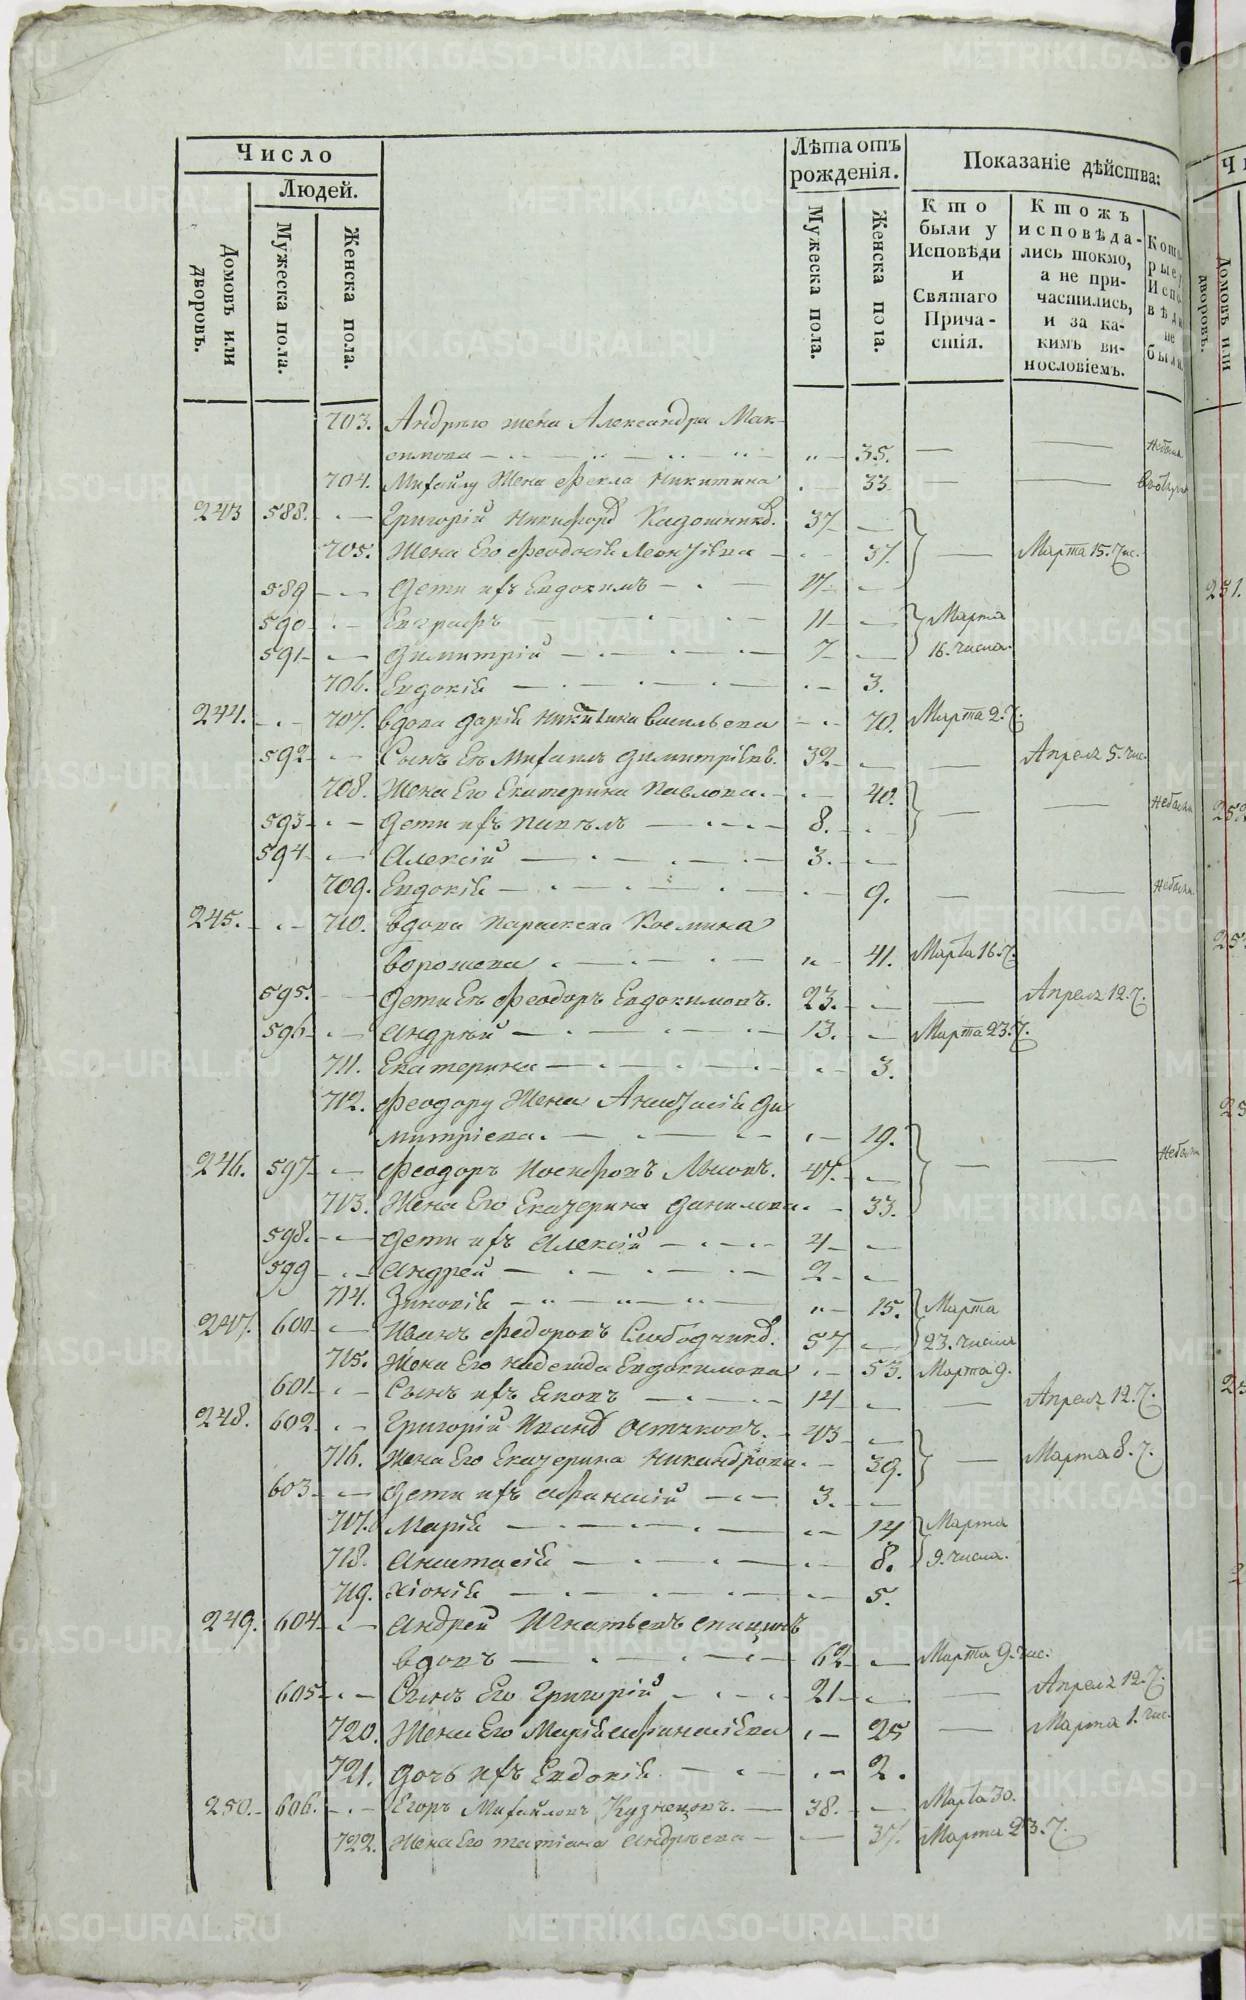 Число
Людей.
Домовъ или дворовъ.
Мужеска пола.
Женска пола.
Лѣта отъ рожденія.
Мужеска пола.
Женска пола.
Показаніе дѣйства:
Кто были у Исповѣди и Святаго Причастія.
Ктожъ исповѣдались токмо, а не причастились, и за какимъ винословіемъ.
703. Андрѣю жена Александра Мак-
симова 35. — —
704. Михайлу Жена Фекла Никитина 33 — —
243 588. Григорій Никифоров 37
705. Жена Его Феодосія Леонтіева 37. — Марта 15. чис.
589 Дети ихъ Евдокимъ 17
590 Евграфъ 11 Марта
591 Димитрій 7 16. числа.
706. Евдокія 3.
244. 707. вдова Дарія Никитина Васильева 70. Марта 2. ч.
592 Сынъ Ея Михаилъ Димитріевъ. 32 — Апреля 5. чис.
708. Жена Его Екатерина Павлова. 40. — — небыли
593 Дети ихъ Павелъ 8.
594 Алексій 3.
709. Евдокія 9. — — небыли
245. 710. вдова Параскева Космина
Ворошева 41. Марта 16. ч.
595. Дети Ея Феодоръ Евдокимовъ. 23. — Апреля 12. ч.
596 Андрѣй 13. Марта 23. ч.
711. Екатерина 3.
712. Феодору Жена Анастасія Ди-
митріева. 19.
246. 597 Феодоръ Иосифовъ Лысовъ. 47. — — небыли
713. Жена Его Екатерина Данилова. 33.
598. Дети ихъ Алексій 4
599 Андрей 2
714. Зиновія 15. Марта
247. 600 Иванъ Федоровъ Слободчиков. 57 23. числа
715. Жена Его Надежда Евдокимова 53. Марта 9.
601 Сынъ ихъ Яковъ 14 — Апреля 12. ч.
248. 602 Григорій Иванов Остяковъ. 43
716. Жена Его Екатерина Никандрова. 39. — Марта 8. ч.
603 Дети ихъ Афанасій 3.
717. Марія 14 Марта
718. Анастасія 8. 9. числа.
719. Хіонія 5.
249. 604 Андрей Игнатьевъ Спицинъ
вдовъ 62 Марта 9. чис.
605 Сынъ Его Григорій 21 — Апреля 12. ч.
720. Жена Его Марія Афанасіева 25 — Марта 1. чис.
721. Дочь ихъ Евдокія 2.
250. 606. Егоръ Михайловъ Кузнецовъ. 38. Марта 30.
722. Жена Его Татіана Андрѣева 37. Марта 23. ч.
METRIKI.GASO-URAL.RU